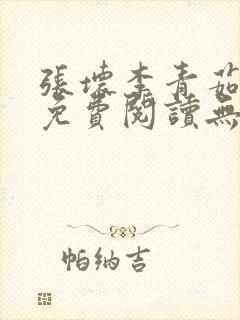 張壞李青茹
免費閱讀無
帕納吉